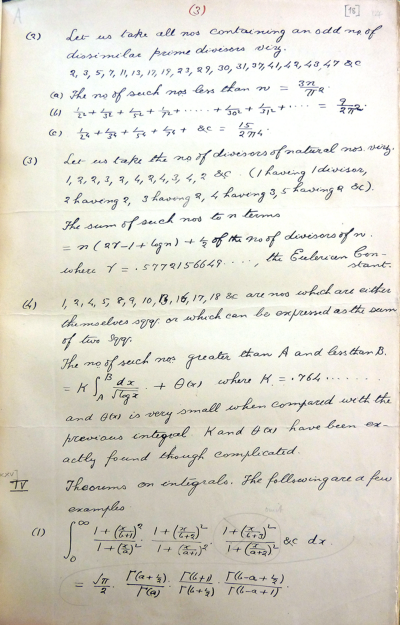 (3)
[15]
(2) Let us take all nos containing an odd no of
dissimilar prime divisors viz.
2, 3, 5, 7, 11, 13, 17, 19, 23, 29, 30, 31, 37, 41, 42, 43, 47 &c
(a) The no of such nos less than n = 3n/π².
(b) 1/2² + 1/3² + 1/5² + 1/7² + ······ + 1/30² + 1/31² + ···· = 9/2π².
(c) 1/2⁴ + 1/3⁴ + 1/5⁴ + 1/7⁴ + &c = 15/2π⁴.
(3) Let us take the no of divisors of natural nos. viz.
1, 2, 2, 3, 2, 4, 2, 4, 3, 4, 2 &c. (1 having 1 divisor,
2 having 2, 3 having 2, 4 having 3, 5 having 2 &c).
The sum of such nos to n terms
= n(2γ-1+log n) + ½ of the no of divisors of n.
where γ = .5772156649····, the Eulerian Con-
stant.
(4) 1, 2, 4, 5, 8, 9, 10, 13, 16, 17, 18 &c are nos which are either
themselves sqq. or which can be expressed as the sum
of two sqq.
The no of such nos greater than A and less than B.
= K ∫_A^B dx/√log x + θ(x) where K = .764······
and θ(x) is very small when compared with the
previous integral. K and θ(x) have been ex-
actly found though complicated.
IV Theorems on integrals. The following are a few
examples
(1) ∫_0^∞ (1+(x/(b+1))²)/(1+(x/a)²) · (1+(x/(b+2))²)/(1+(x/(a+1))²) · (1+(x/(b+3))²)/(1+(x/(a+2))²) &c dx.
= √π/2 · Γ(a+½)/Γ(a) · Γ(b+1)/Γ(b+½) · Γ(b-a+½)/Γ(b-a+1).